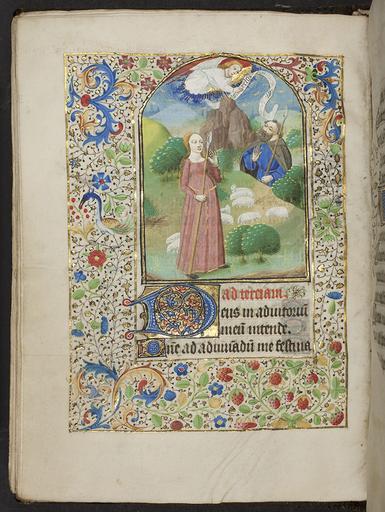 ad terciam.
Deus in adiutoriū
meū intende.
Dñe ad adiuuādū me festina